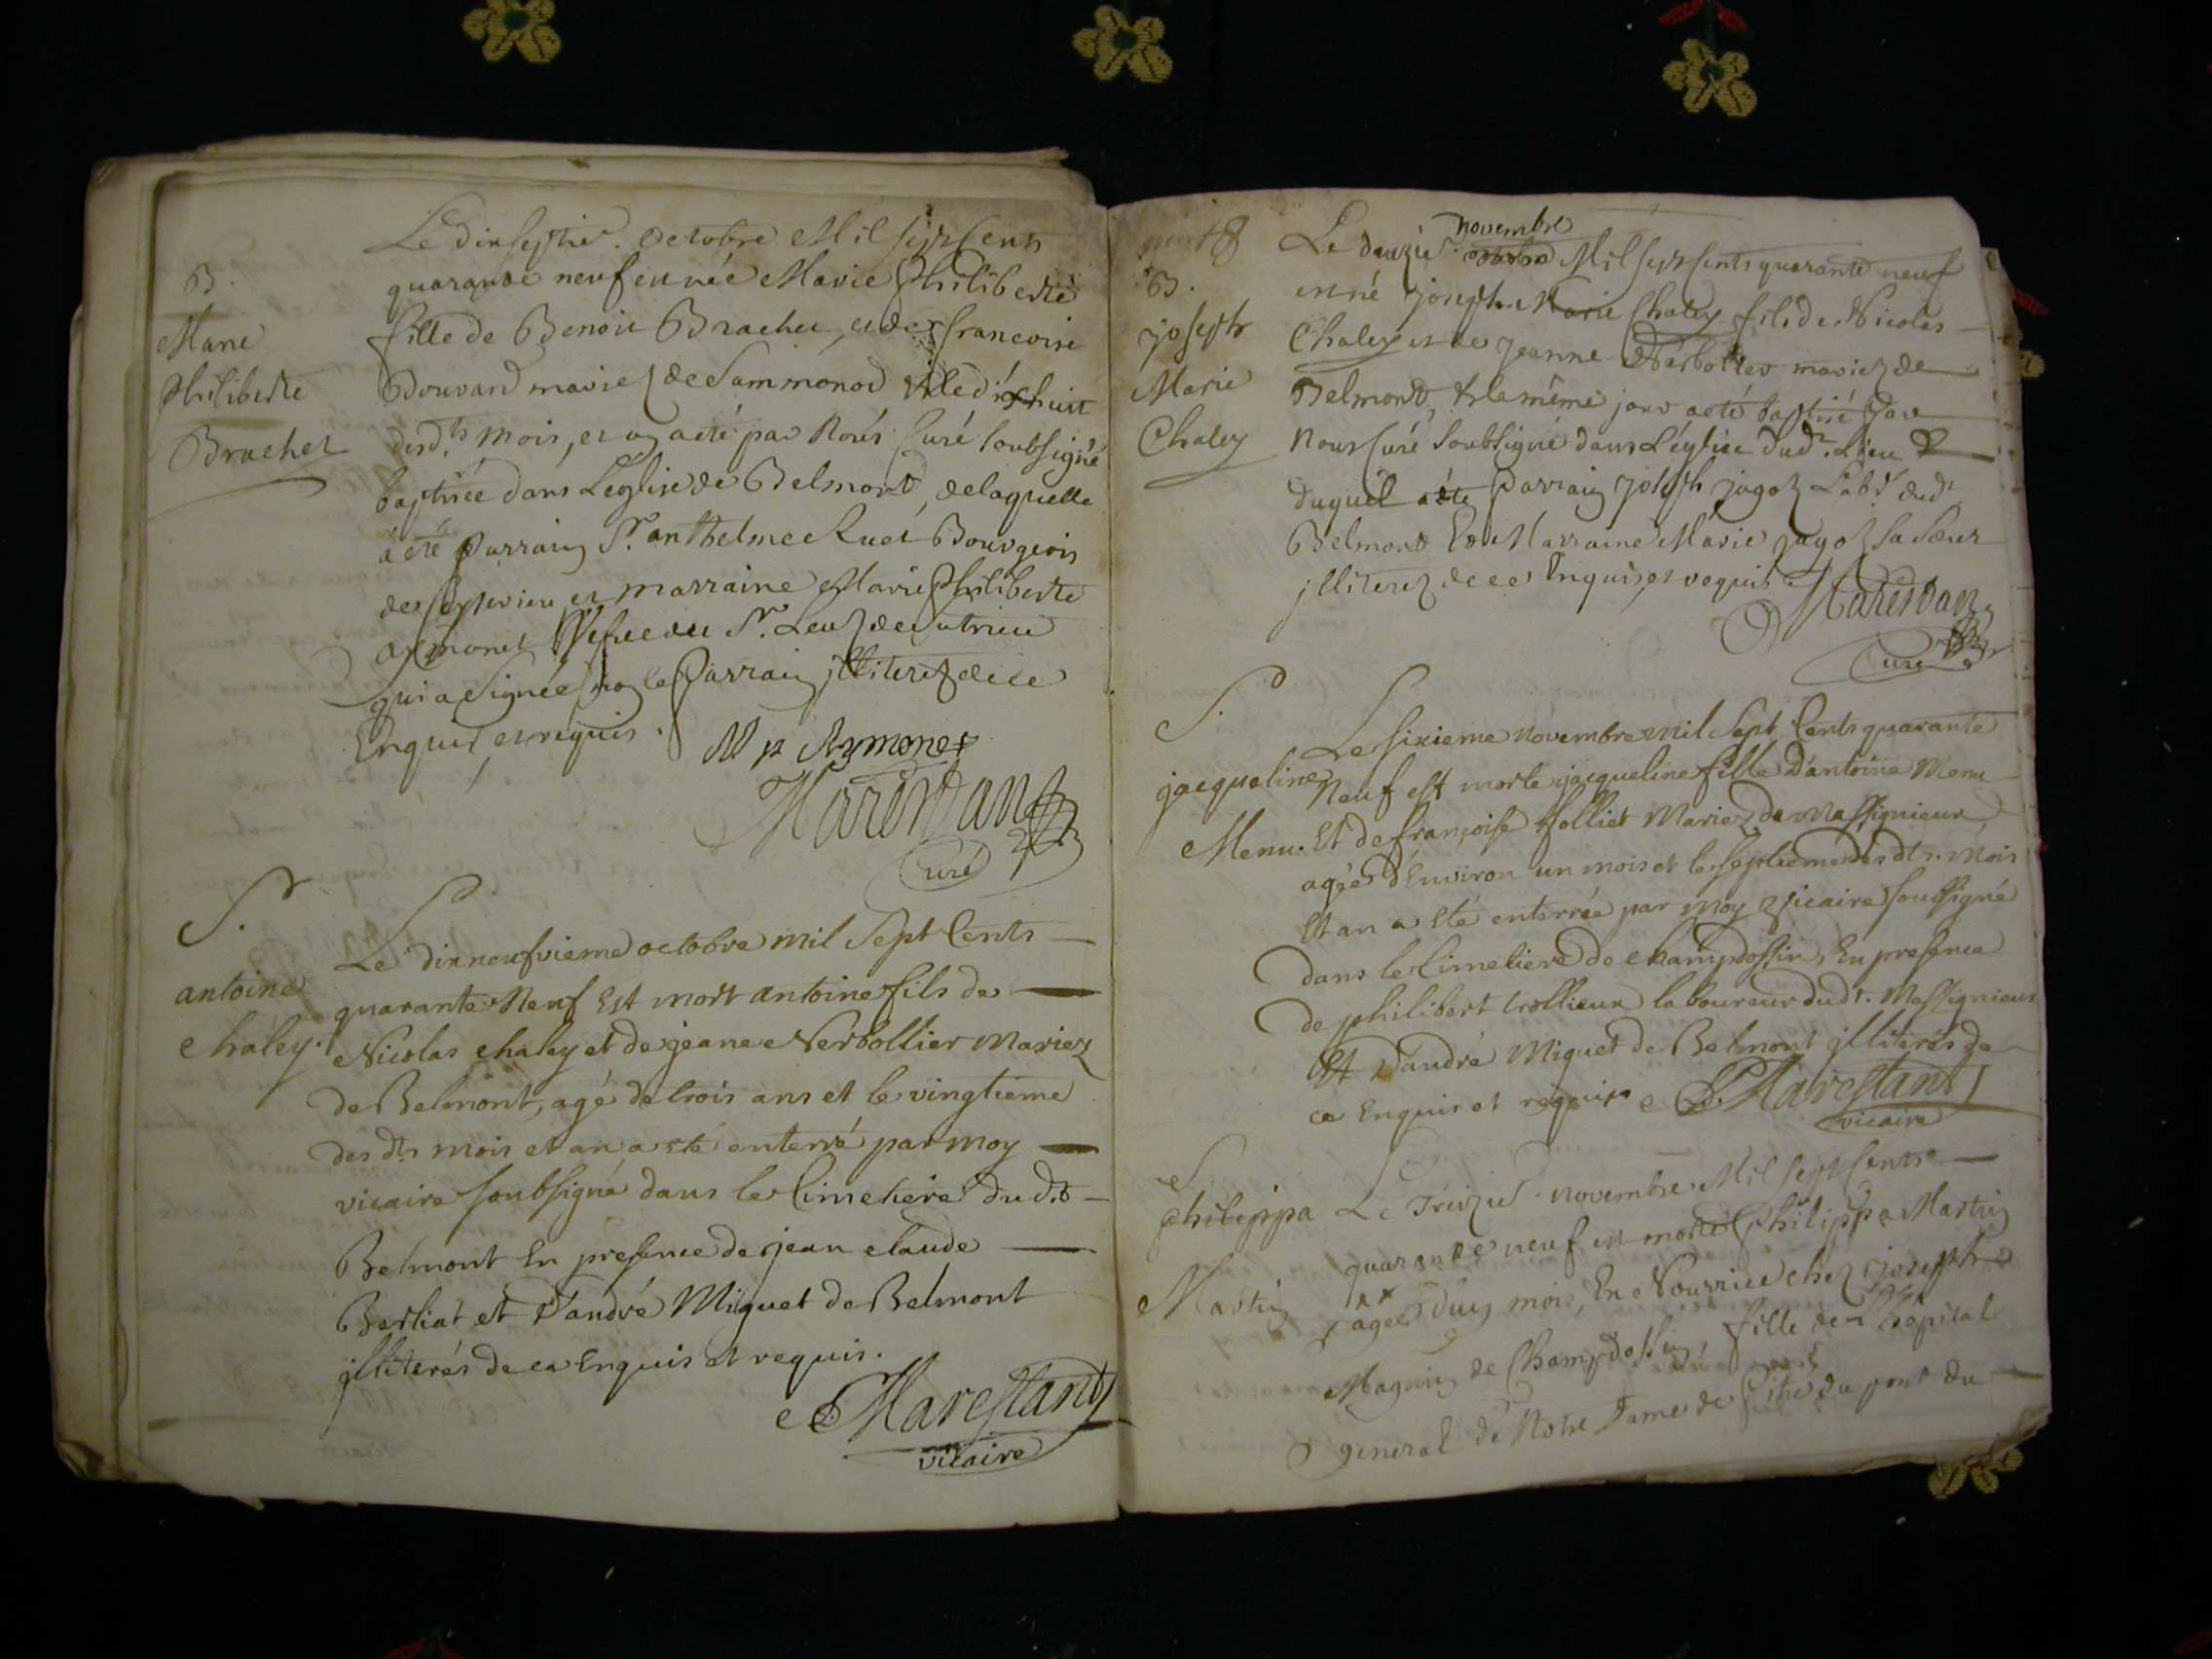 B.
Marie
Philiberte
Brachet
Le dixseptie. octobre Mil sept cents
quarante neuf est née Marie Philiberte
fille de Benoit Brachet, et de francoise
Bouvard mariez de Sammonod & le dixhuit
desd.ts mois, et an a eté par Nous Curé soubsigné
baptisée dans L'eglise de Belmont, de laquelle
a eté parrain Sr. anthelme Ruet Bourgeois
de et marraine Marie Philiberte
aymonet du Sr.
qui a signée non le Parrain jlliterez de ce
Enquis, et requis.
M p Aymonet
Marestan
Curé
S.
antoine
chaley.
Le dixneufvieme octobre mil Sept Cents
quarante Neuf Est mort antoine fils de
Nicolas chaley et de jeane Nerbollier Mariez
de Belmont, agé de trois ans et le vingtieme
des dts mois et an a eté enterré par moy
vicaire soubsigné dans le Cimetiere du d.t
Belmont En presence de jean claude
Berliat et d'andré Miguet de Belmont
jlliterés de ce Enquis et requis.
Marestant
vicaire
B.
joseph
Marie
Chaley
novembre
Le douzie. octobre Mil sept cents quarante neuf
est né joseph Marie Chaley fils de Nicolas
Chaley et de jeanne Nerbollier mariez de
Belmont, & le même jour a eté baptisé par
Nous Curé soubsigné dans L'église dud.t Lieu &
duquel a eté Parrain joseph jagoz Labr dudt
Belmont Et Marraine Marie jagoz sa sœur
jlliterez de ce Enquis, et requis
Marestan
Curé
S.
jacqueline
Menu.
Le sixieme novembre mil Sept Cents quarante
Neuf est morte jacqueline fille d'antoine Menu
Et de françoise folliet Mariez de Massignieux
agée d'Environ un mois et le septieme des dts. mois
Et an a eté enterrée par moy vicaire soussigné
dans le Cimetiere de champdossin, En presence
de philibert trollieux laboureur dudt. Massignieux
Et d'andré Miguet de Belmont jlliterés de
ce Enquis et requis
Marestant
vicaire
S.
Philippa
Martin
Le Treizie. novembre Mil sept cents
quarante neuf est morte Philippa Martin
agée d'un mois, En Nourrice chez joseph
Magnin de Champdossin, fille de l'hôpital
general de Notre Dame de Pitié du pont du